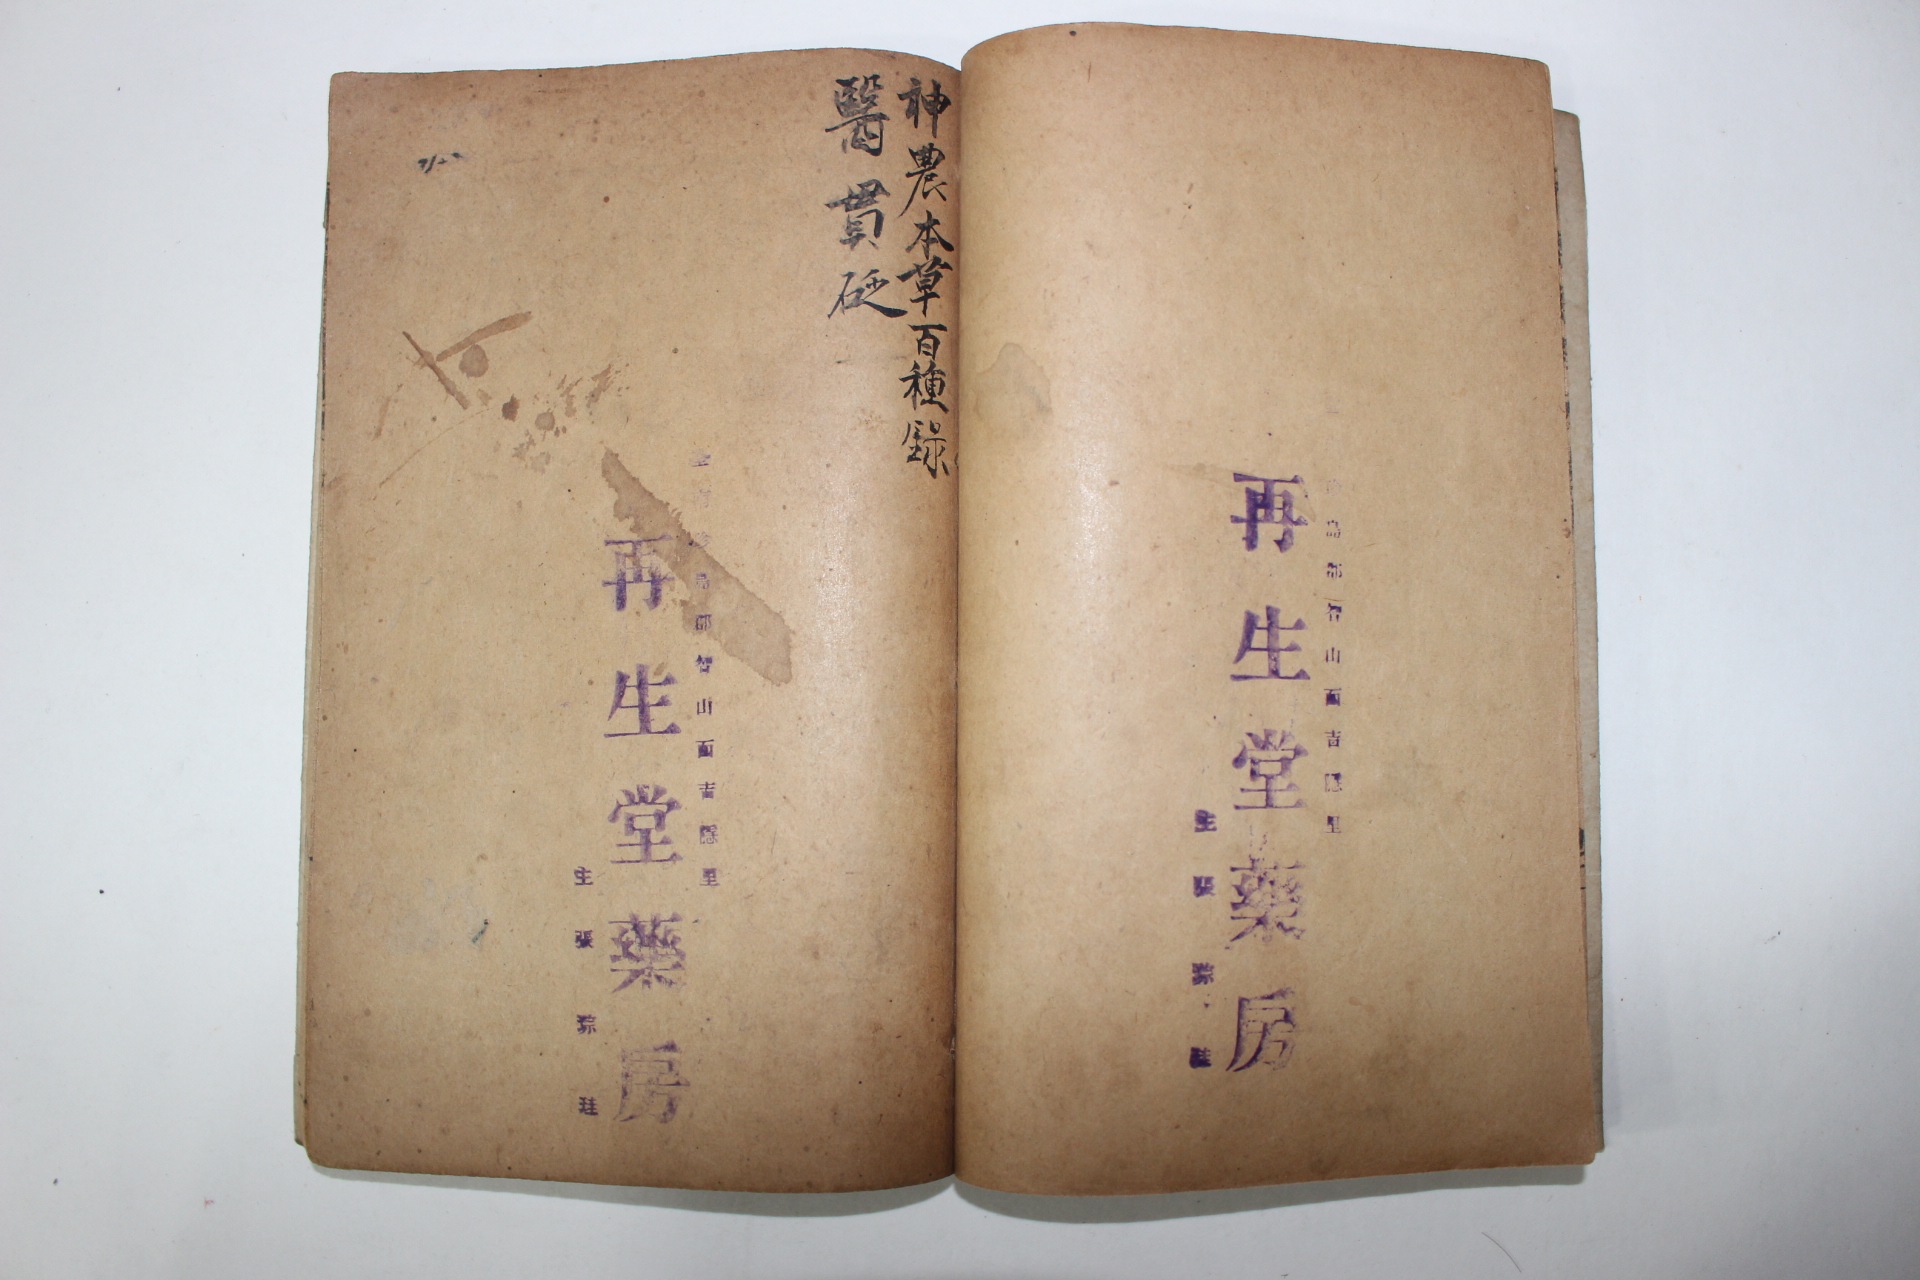 島郡智山面吉隱里
再生堂藥房
主張
神農本草百種錄
醫貫砭
島郡智山面吉隱里
再生堂藥房
主張